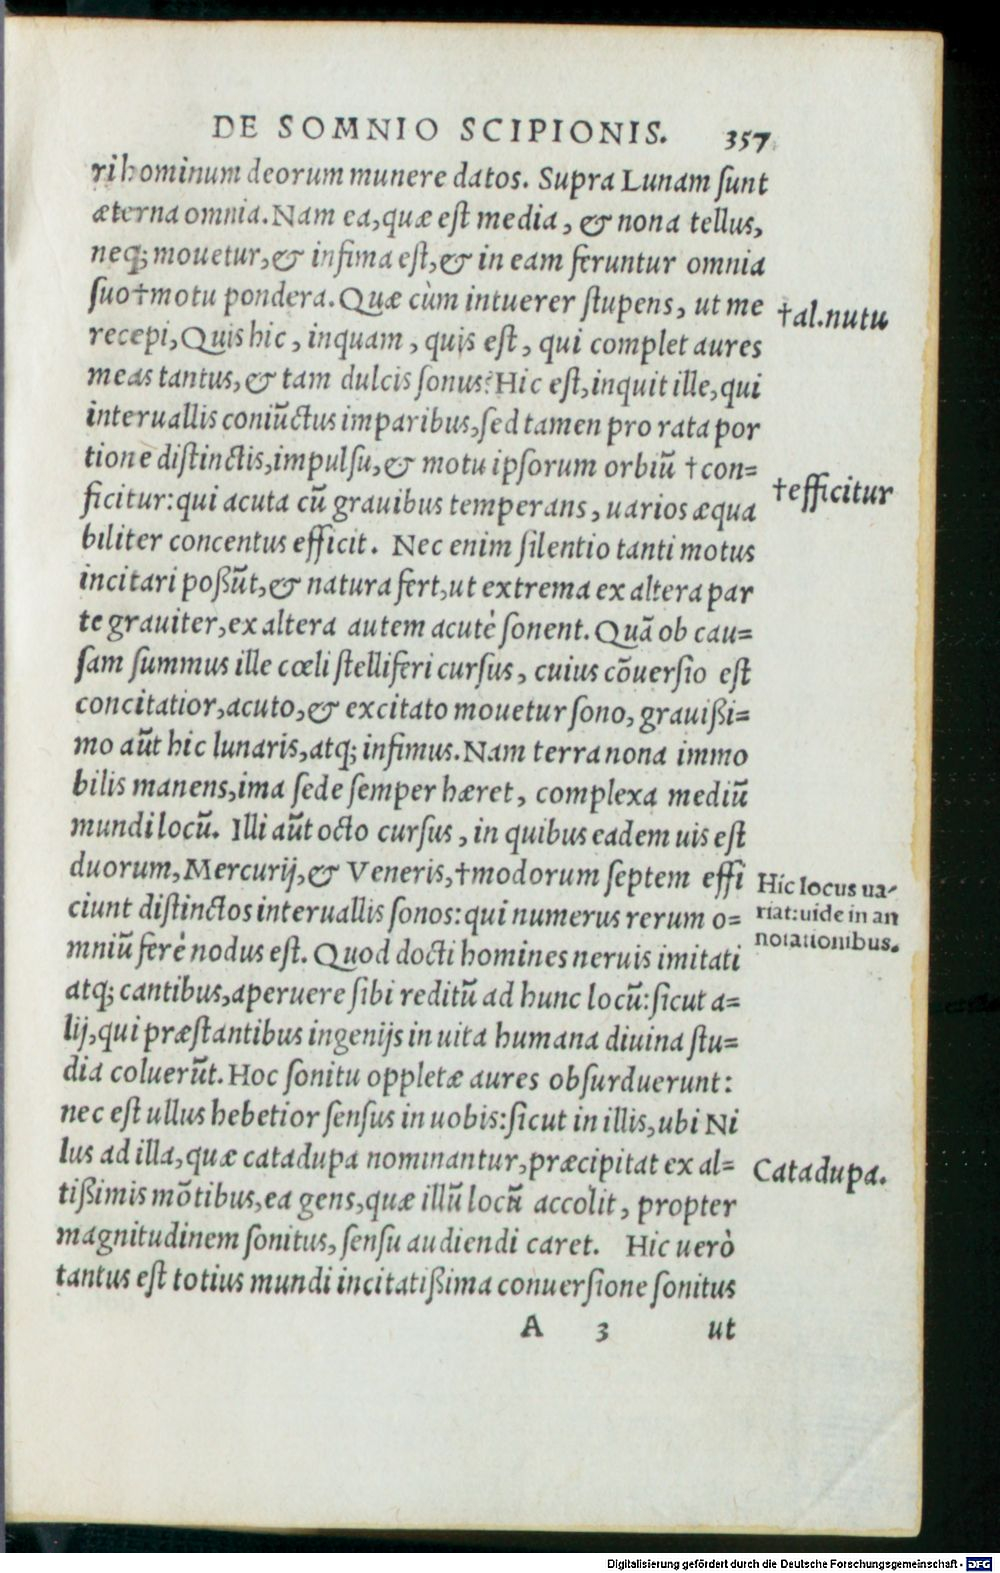 DE SOMNIO SCIPIONIS. 357
ri hominum deorum munere datos. Supra Lunam sunt
æterna omnia. Nam ea, quæ est media, & nona tellus,
neq; mouetur, & infima est, & in eam feruntur omnia
suo †motu pondera. Quæ cùm intuerer stupens, ut me
†al. nutu
recepi, Quis hic, inquam, quis est, qui complet aures
meas tantus, & tam dulcis sonus? Hic est, inquit ille, qui
interuallis coniūctus imparibus, sed tamen pro rata por
tione distinctis, impulsu, & motu ipsorum orbiū †con=
†efficitur
ficitur: qui acuta cū grauibus temperans, uarios æqua
biliter concentus efficit. Nec enim silentio tanti motus
incitari poßūt, & natura fert, ut extrema ex altera par
te grauiter, ex altera autem acutè sonent. Quā ob cau=
sam summus ille cœli stelliferi cursus, cuius cōuersio est
concitatior, acuto, & excitato mouetur sono, grauißi=
mo aūt hic lunaris, atq; infimus. Nam terra nona immo
bilis manens, ima sede semper hæret, complexa mediū
mundi locū. Illi aūt octo cursus, in quibus eadem uis est
duorum, Mercurij, & Veneris, †modorum septem effi
Hic locus ua-
ciunt distinctos interuallis sonos: qui numerus rerum o=
riat: uide in an
mniū ferè nodus est. Quod docti homines neruis imitati
notationibus.
atq; cantibus, aperuere sibi reditū ad hunc locū: sicut a=
lij, qui præstantibus ingenijs in uita humana diuina stu=
dia coluerūt. Hoc sonitu oppletæ aures obsurduerunt:
nec est ullus hebetior sensus in uobis: sicut in illis, ubi Ni
lus ad illa, quæ catadupa nominantur, præcipitat ex al=
Catadupa.
tißimis mōtibus, ea gens, quæ illū locū accolit, propter
magnitudinem sonitus, sensu audiendi caret. Hic uerò
tantus est totius mundi incitatißima conuersione sonitus
A 3 ut
Digitalisierung gefördert durch die Deutsche Forschungsgemeinschaft - DFG